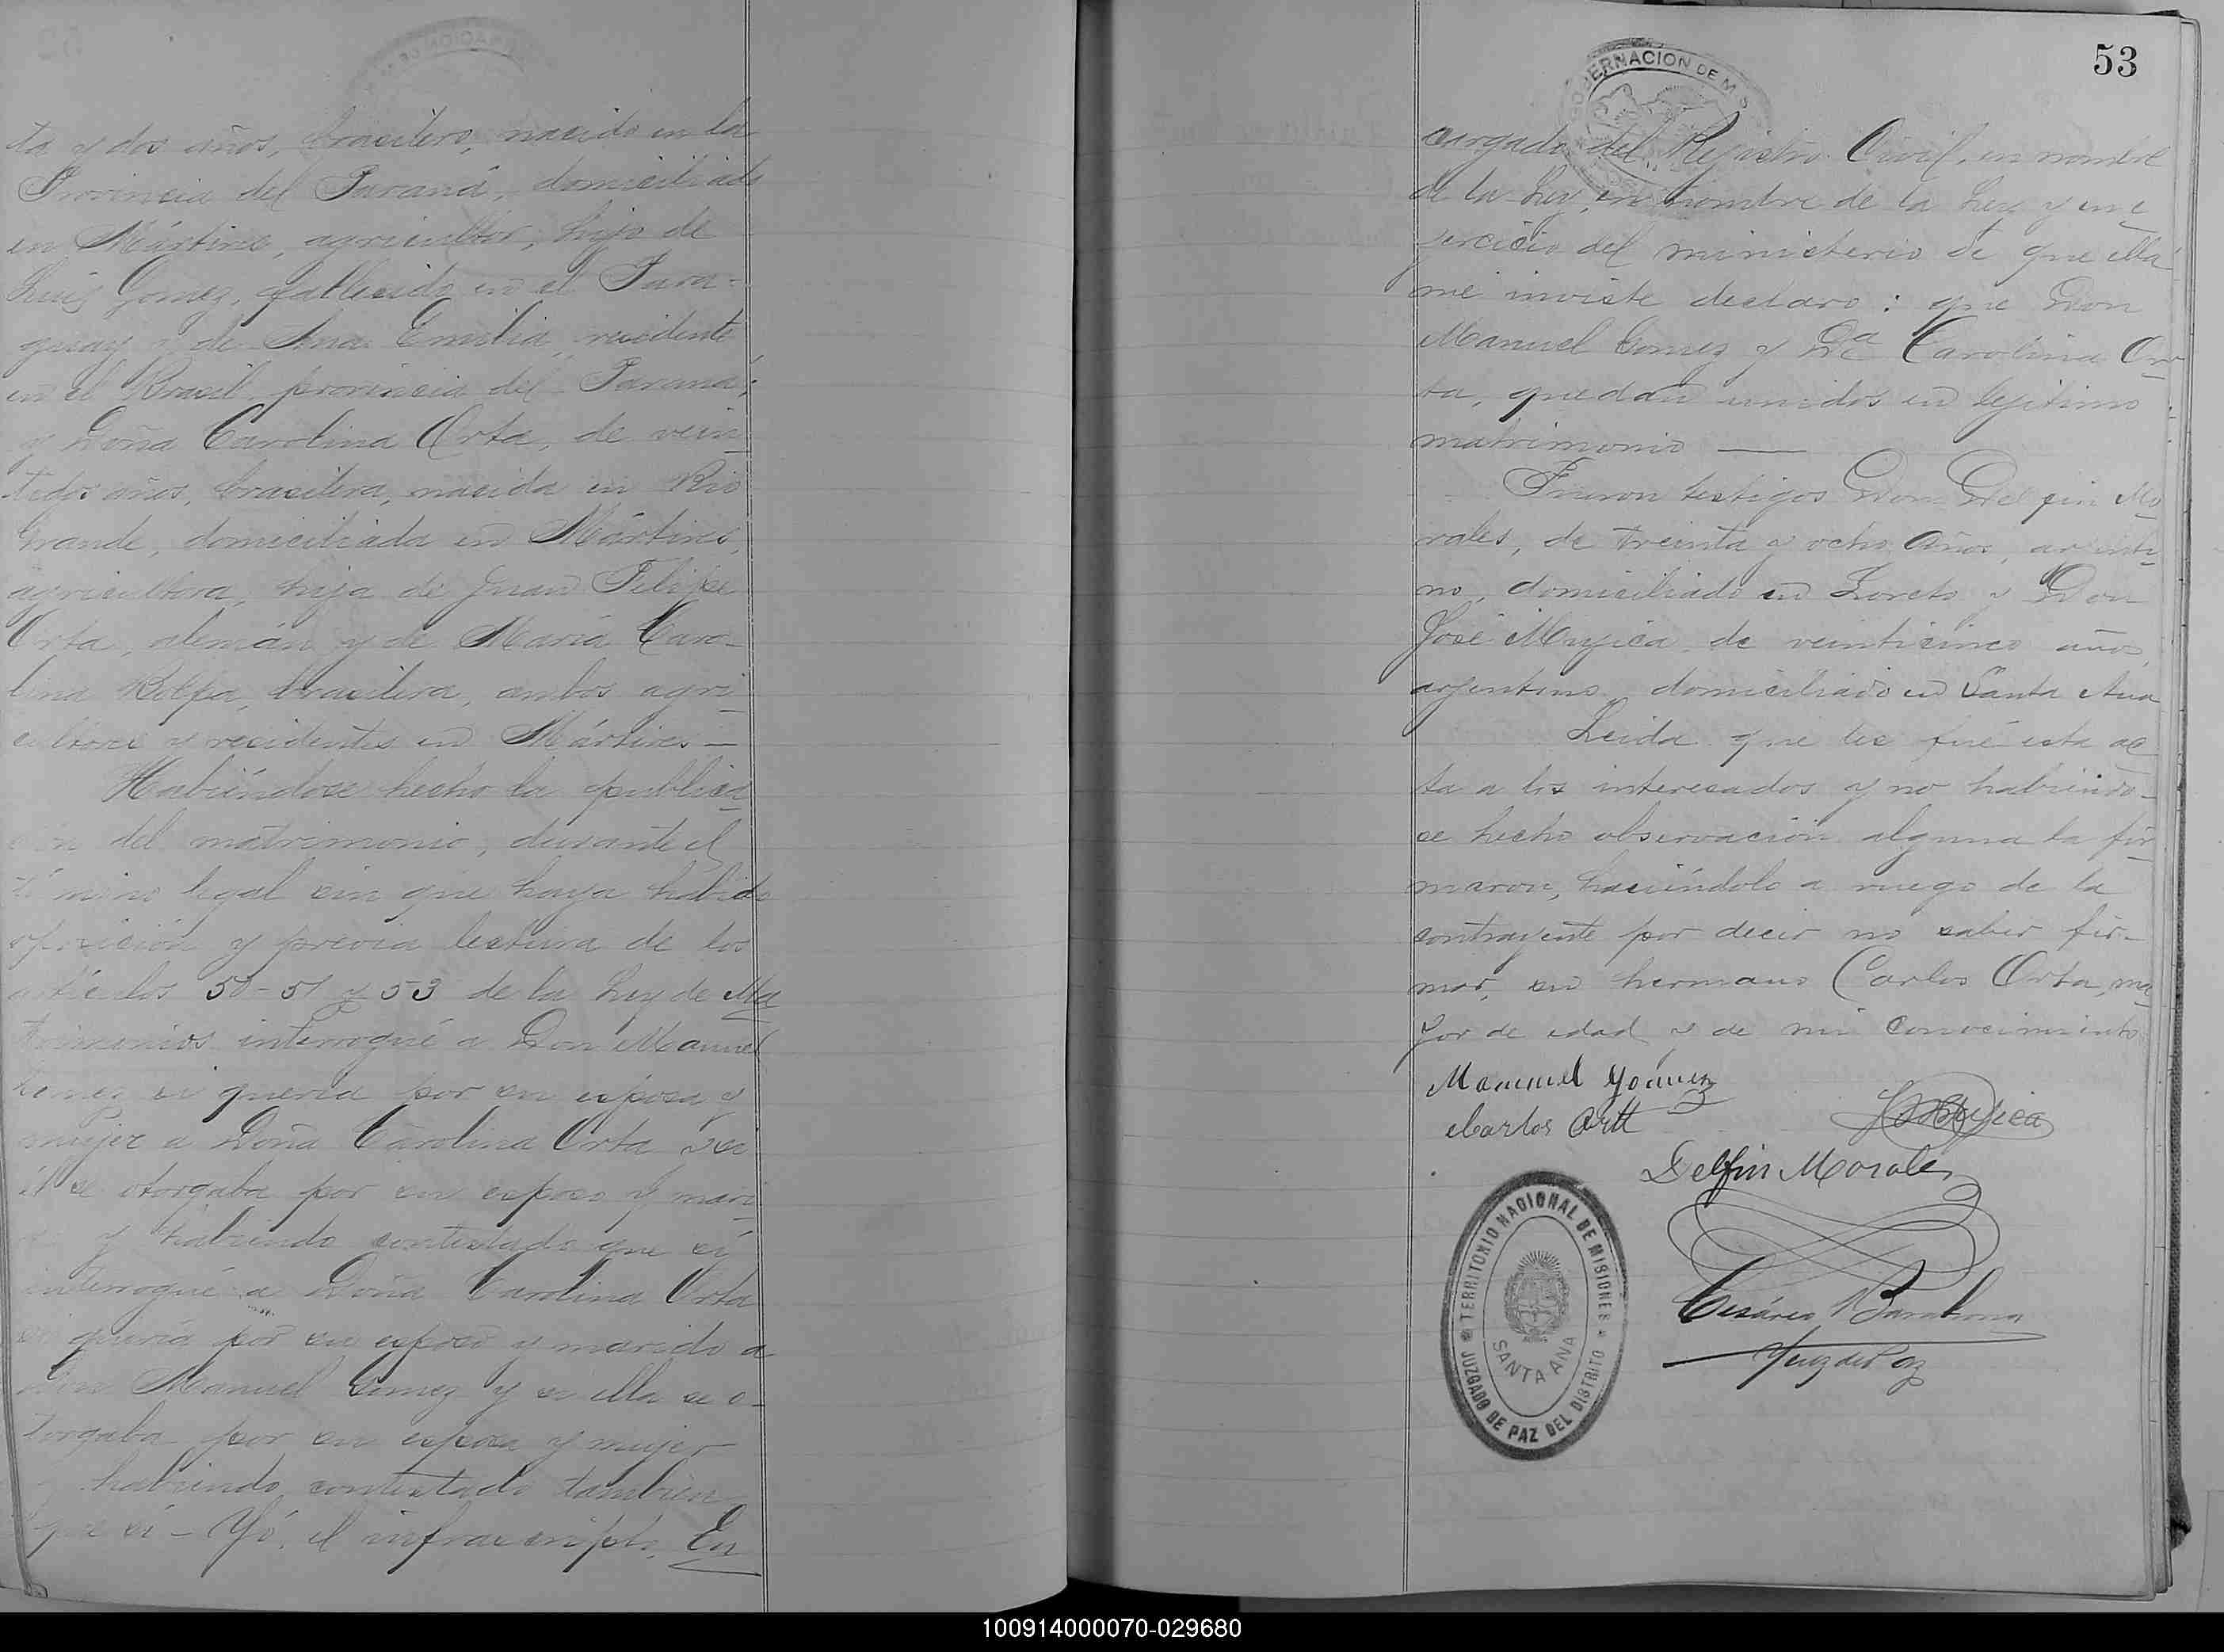 ta y dos años, brasilero, nacido en la
Provincia del Paraná, domiciliado
en Mártires, agricultor, hijo de
Luis Gomez, fallecido en el Para-
guay y de Ana Emilia, residente
en el Brasil, provincia del Paraná;
y Doña Carolina Orta, de vein
tidos años, brasilera, nacida en Rio
Grande, domiciliada en Mártires,
agricultora, hija de Juan Felipe
Orta, alemán y de María Caro-
lina, brasilera, ambos agri
cultores y residentes en Mártires—
Habiéndose hecho la publica
ción del matrimonio, durante el
término legal sin que haya habido
oposición y previa lectura de los
artículos 50-51 y 53 de la Ley de Ma
trimonios interrogué a Don Manuel
Gomez si queria por su esposa y
mujer a Doña Carolina Orta y si
él se otorgaba por su esposo y mari
do y habiendo contestado que sí
interrogué a Doña Carolina Orta
si quería por su esposo y marido a
Don Manuel Gomez y si ella se o-
torgaba por su esposa y mujer
y habiendo contestado tambien
que sí — Yó, el infrascripto, En
53
GOBERNACION DE
cargado del Rejistro Civil, en nombre
de la Ley, en nombre de la Ley y en e
jercicio del ministerio de que ella
me inviste declaro: que Don
Manuel Gomez y Da Carolina Or
ta, quedan unidos en lejitimo
matrimonio —
Fueron testigos Don Delfin Mo
rales, de treinta y ocho años, arjenti
no, domiciliado en Loreto y Don
José Mujica de veinticinco años,
arjentino, domiciliado en Santa Ana
Leida que les fué esta ac
ta a los interesados y no habiéndo-
se hecho observación alguna la fir
maron, haciéndolo a ruego de la
contrayente por decir no saber fir-
mar, su hermano Carlos Orta, ma
yor de edad y de mi conocimiento
Manuel Gómez
Carlos Ortt
J Mujica
Delfin Morales
TERRITORIO NACIONAL DE MISIONES
SANTA ANA
JUZGADO DE PAZ DEL DISTRITO
Cesáreo Barahona
Juez de Paz
100914000070-029680